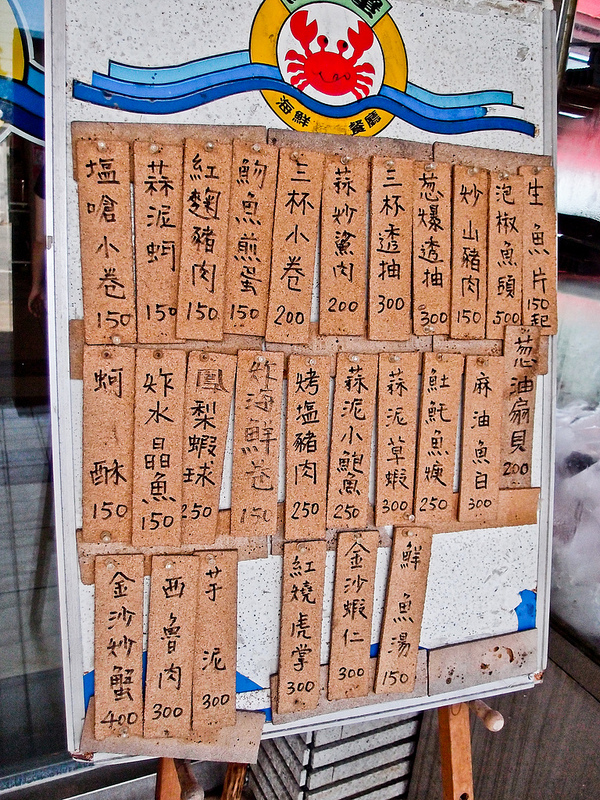 海鮮 餐廳
生魚片 150起
泡椒魚頭 500
炒山豬肉 150
葱爆透抽 300
三杯透抽 300
蒜炒鯊肉 200
三杯小卷 200
魩魚煎蛋 150
紅麴豬肉 150
蒜泥蚵 150
塩嗆小卷 150
葱油扇貝 200
麻油魚白 300
魠魚焿 250
蒜泥草蝦 300
蒜泥小鮑魚 250
烤塩豬肉 250
炸海鮮卷 150
鳳梨蝦球 250
炸水晶魚 150
蚵酥 150
鮮魚湯 150
金沙蝦仁 300
紅燒虎掌 300
芋泥 300
西魯肉 300
金沙炒蟹 400